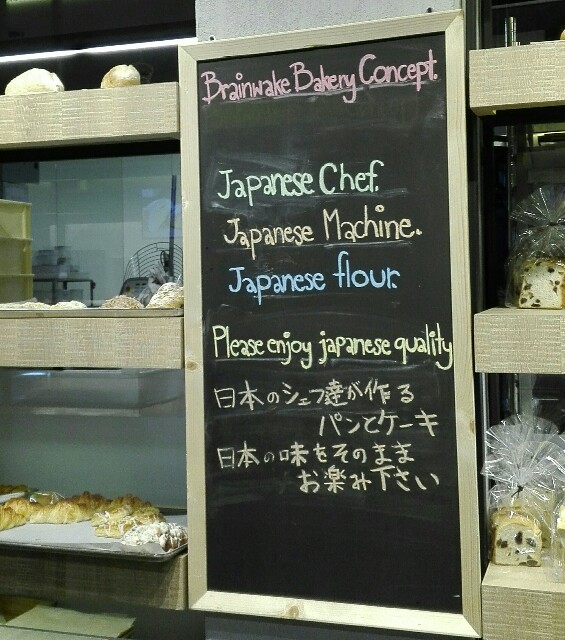 Brainwake Bakery Concept.
Japanese Chef.
Japanese Machine.
Japanese flour.
Please enjoy japanese quality
日本のシェフ達が作る
パンとケーキ
日本の味をそのまま
お楽み下さい